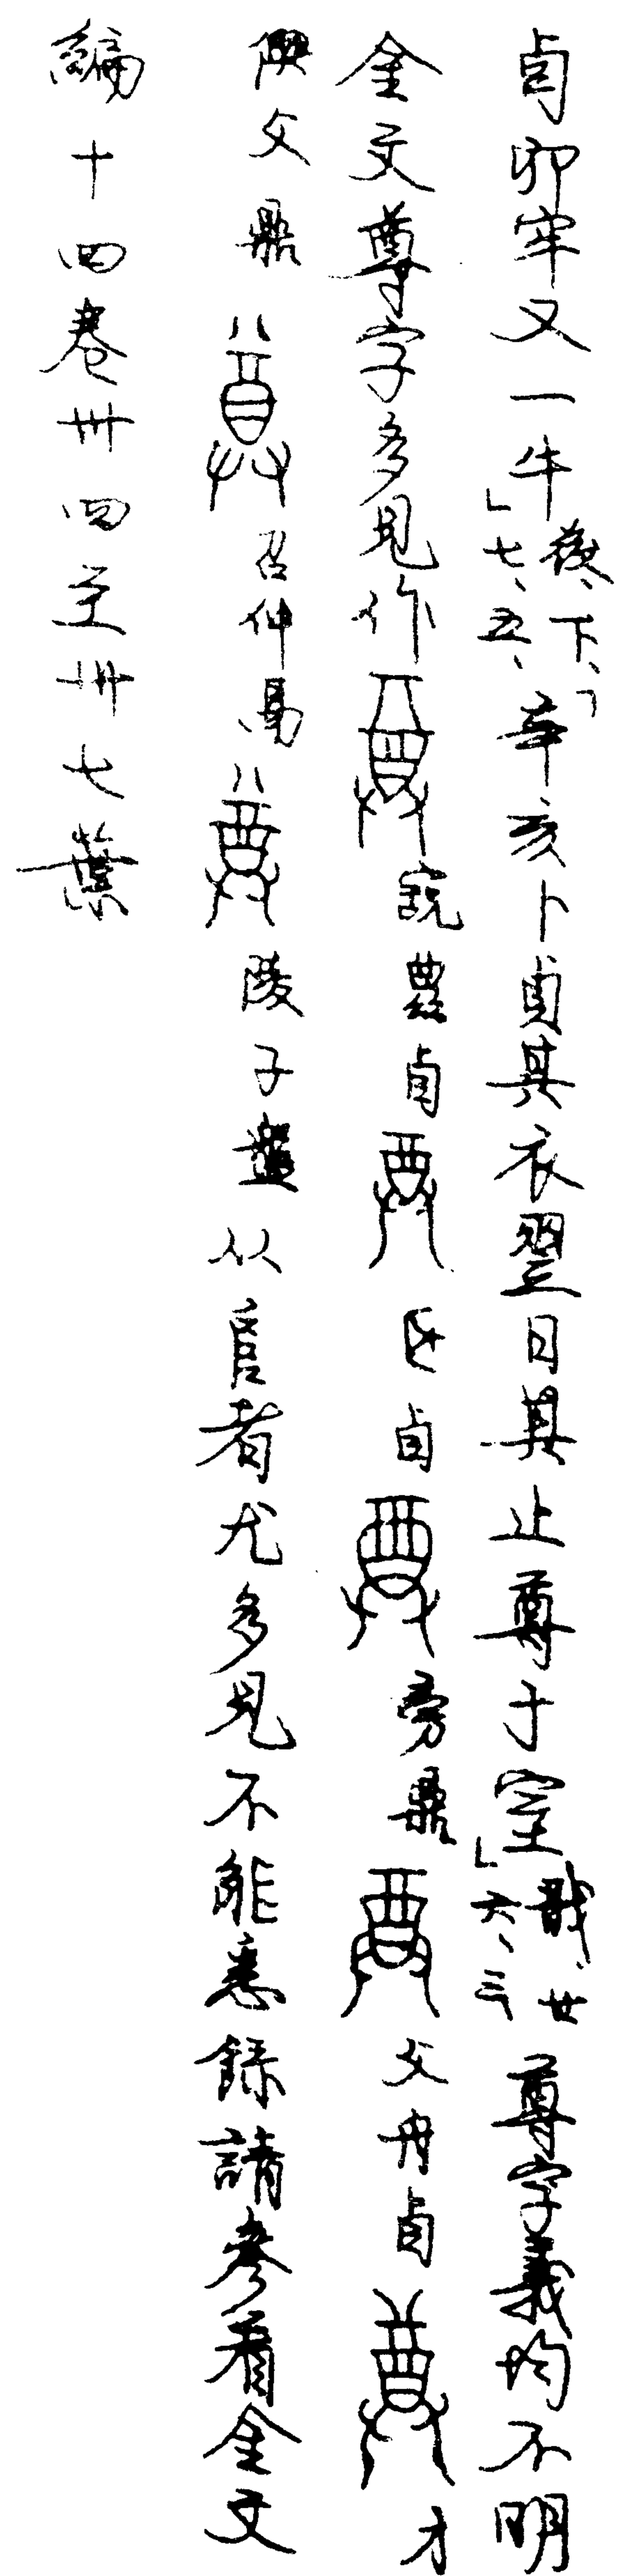 卣卯牢又一牛」後、下、七、五、「辛亥卜貞其衣翌日其止尊于室」戩、廿六、三、尊字義均不明
金文尊字多見作 䆷農卣 卣 旁鼎 父舟卣 才
父鼎 召仲鬲 陵子盤从𨸏者尤多見不能悉錄請參看金文
編十四卷卅四至卅七葉